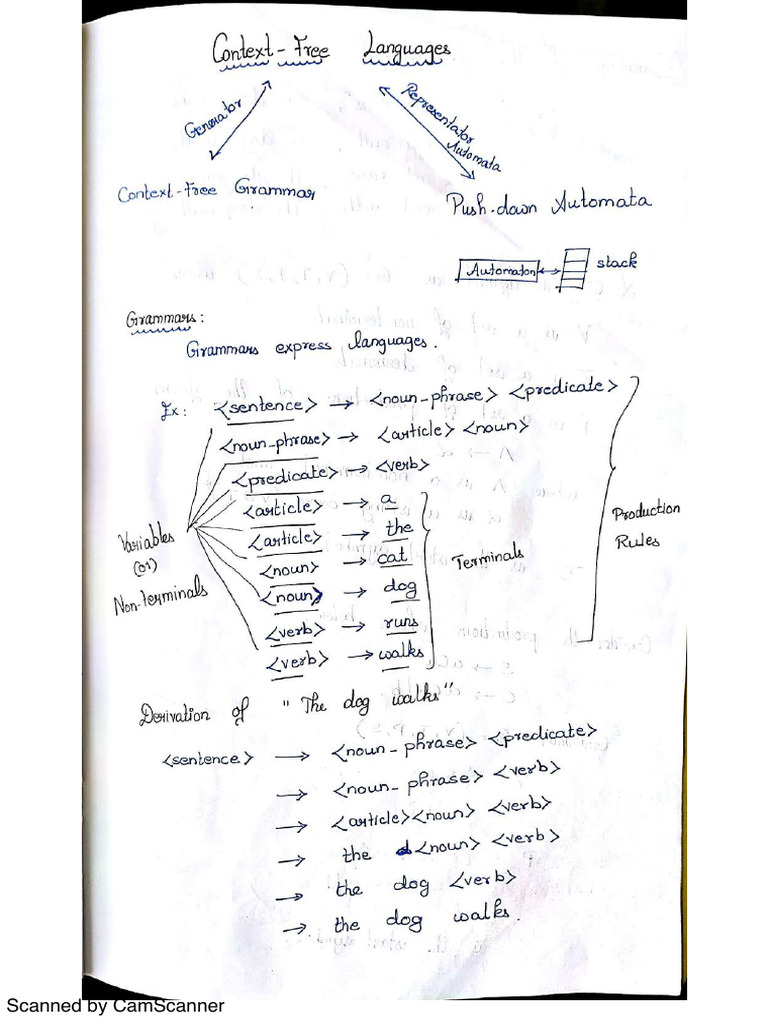 Context-Free Languages
Generator
Representator
Automata
Context-Free Grammar
Push-down Automata
Automaton
stack
Grammars:
Grammars express languages.
Ex: <sentence> → <noun-phrase> <predicate>
<noun-phrase> → <article> <noun>
<predicate> → <verb>
<article> → a
<article> → the
<noun> → cat
<noun> → dog
<verb> → runs
<verb> → walks
Variables
(or)
Non-terminals
Terminals
Production
Rules
Derivation of "The dog walks"
<sentence> → <noun-phrase> <predicate>
→ <noun-phrase> <verb>
→ <article><noun> <verb>
→ the <noun> <verb>
→ the dog <verb>
→ the dog walks.
Scanned by CamScanner